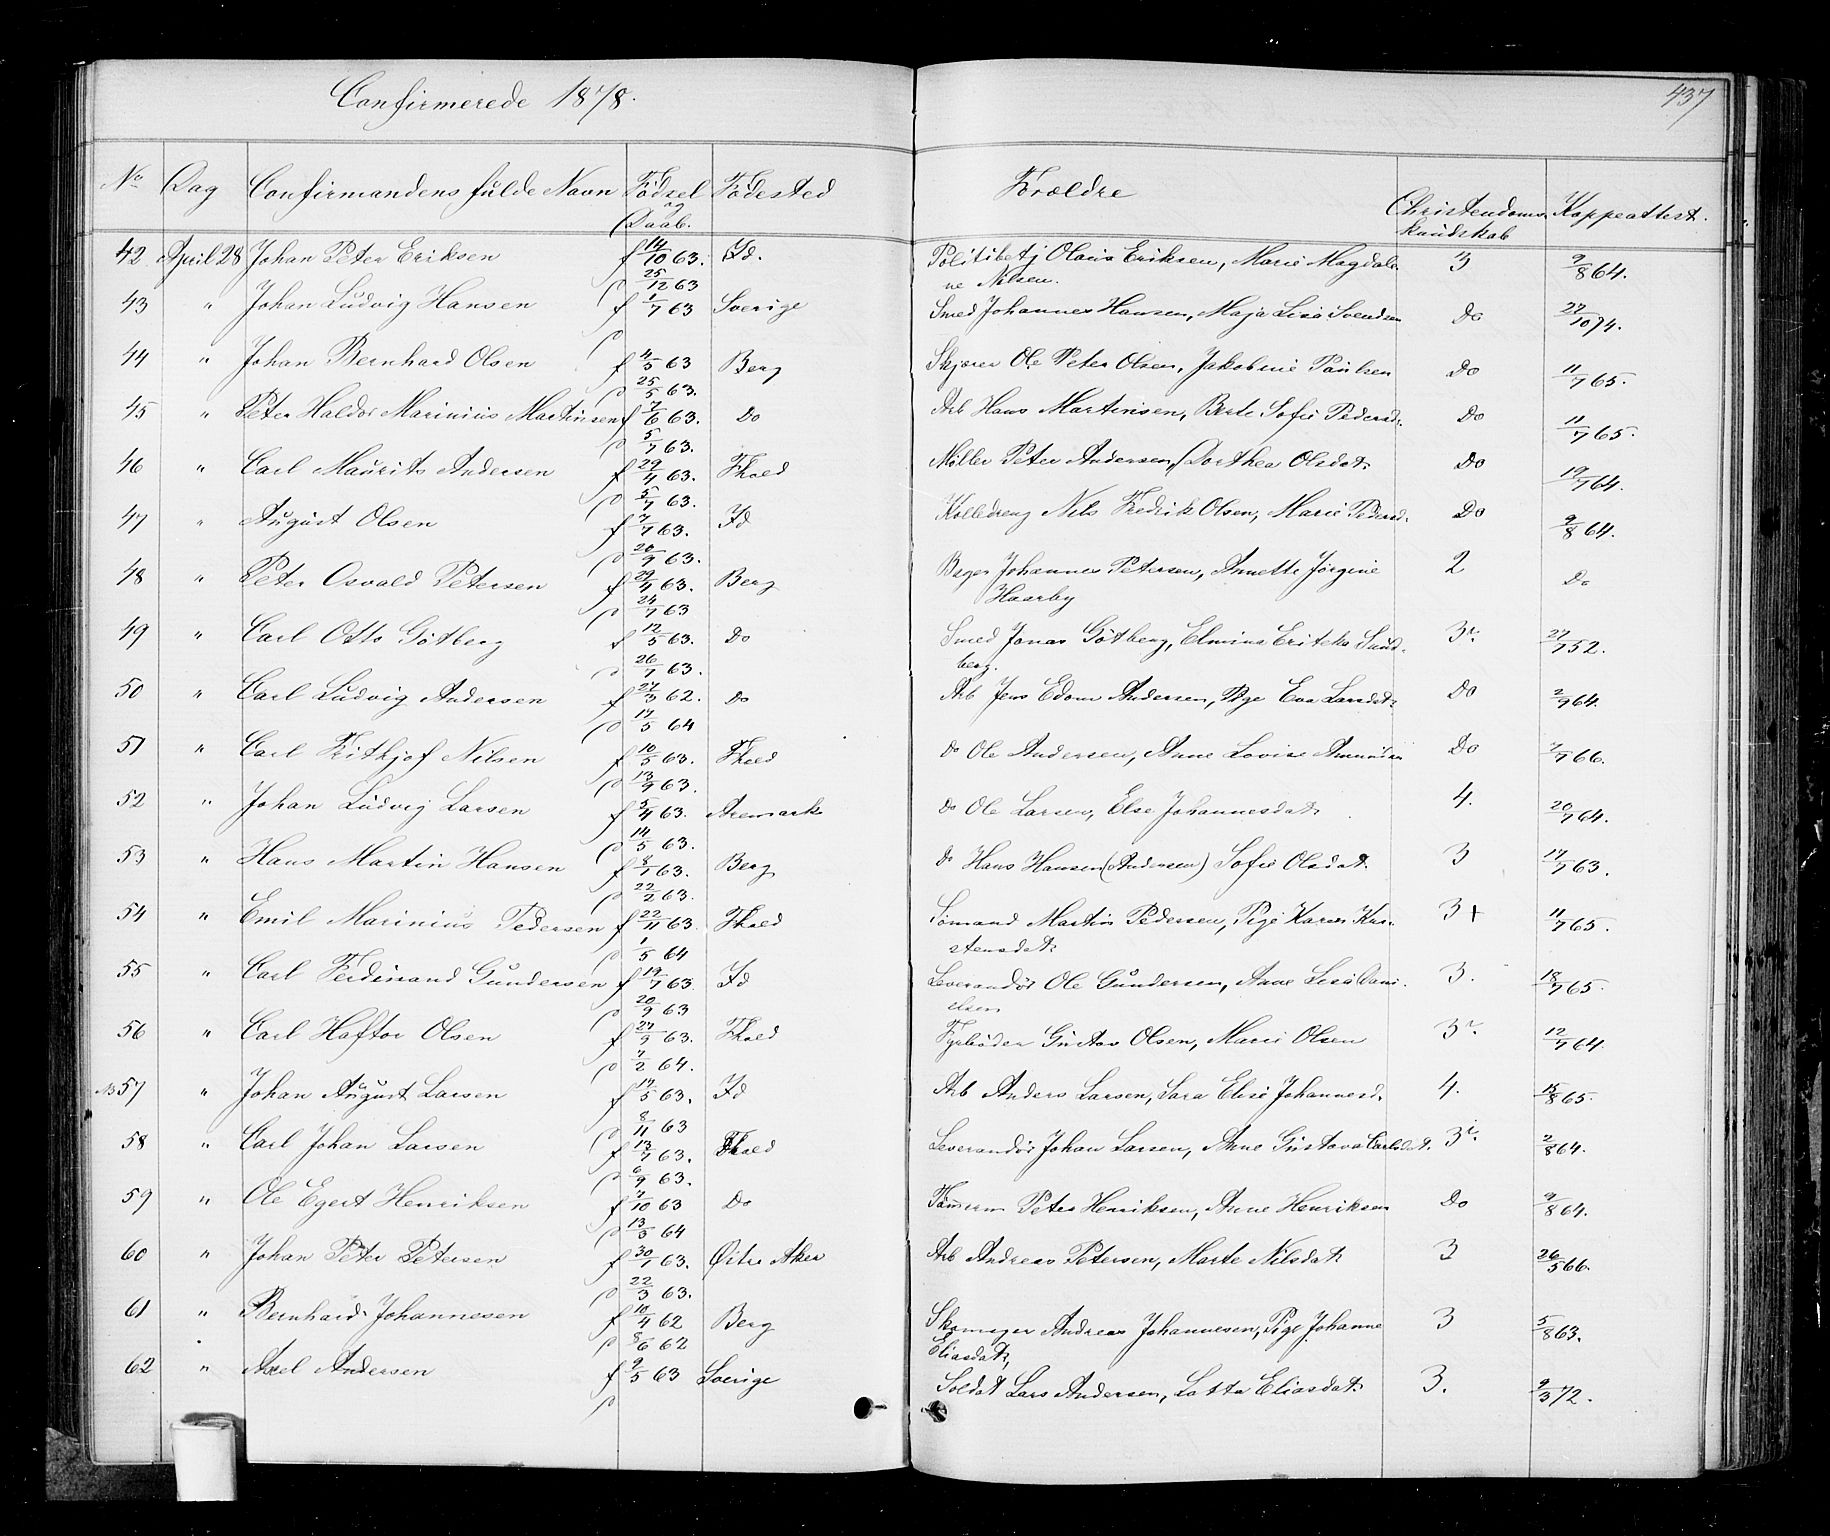 Confirmerede 1878.
437
No Dag Confirmandens fulde Navn Fødsel og Daab. Fødested Forældre Christendoms kundskab Koppeattest.
42 April 28 Johan Peter Eriksen f 14/10 63. Id. Politibetj Olaus Eriksen, Marie Magdale- 3 9/8 64.
d 25/12 63 ne Nilsen.
43 " Johan Ludvig Hansen f 1/7 63 Sverige Smed Johannes Hansen, Maja Lisa Svendsen Do 27/10 74.
d
44 " Johan Bernhard Olsen f 4/3 63 Berg Skjærer Ole Peter Olsen, Jakobine Paulsen Do 11/7 65.
d 25/5 63.
45 " Peter Haldor Marinius Martinsen f 7/6 63. Do Arb Hans Martinsen, Berte Sofie Pedersd. Do 11/7 65.
d 5/7 63.
46 " Carl Maurits Andersen f 29/4 63. Fhald Møller Peter Andersen, Dorthea Olsdat. Do 19/7 64.
d 5/7 63.
47 " August Olsen f 7/7 63. Id Nils Fredrik Olsen, Marie Pedersd. Do 9/8 64.
d 20/9 63.
48 " Peter Osvald Petersen f 29/4 63. Berg Bager Johannes Petersen, Annette Jørgine 2 Do
d 24/7 63 Haarby
49 " Carl Otto Gøtberg f 12/5 63. Do Smed Jonas Gøtberg, Elmina Sund- 3 27/7 52.
d 26/7 63. berg.
50 " Carl Ludvig Andersen f 27/3 62. Do Arb Jens Edom Andersen, Pige Eva Larsdat. Do 2/9 64.
d 17/5 64
51 " Carl Frithjof Nilsen f 10/5 63. Fhald Do Ole Andersen, Anne Lovise Do 7/9 66.
d 13/9 63.
52 " Johan Ludvig Larsen f 5/4 63. Aremark Do Ole Larsen, Else Johannesdat. 4. 20/7 64.
d 14/5 63.
53 " Hans Martin Hansen f 8/1 63. Berg Do Hans Hansen (Andersen) Sofie Olsdat. 3 17/7 63.
d 22/2 63.
54 " Emil Marinius Pedersen f 22/11 63. Fhald Sømand Martin Pedersen, Pige Karen Kri- 3+ 11/7 65.
d 1/5 64 stensdat.
55 " Carl Ferdinand Gundersen f 19/7 63. Id Leverandør Ole Gundersen, Anne Lisa Dani- 3. 18/7 65.
d 20/9 63 elsen
56 " Carl Haftor Olsen f 27/9 63. Fhald Fyrbøder Gustav Olsen, Marie Olsen 3 12/7 64.
d 7/2 64.
NB 57 " Johan August Larsen f 17/5 63. Id Arb Anders Larsen, Sara Elise Johannesd. 4. 15/8 65.
d 8/11 63
58 " Carl Johan Larsen f 13/7 63. Fhald Leverandør Johan Larsen, Anne Gustava Carlsdat. 3 2/8 64.
d 6/9 63.
59 " Ole Egert Henriksen f 7/10 63 Do Tømerm Peter Henriksen, Anne Henriksen Do 9/8 64.
d 13/3 64
60 " Johan Peter Petersen f 30/1 63. Østre Aker Arb Andreas Petersen, Marte Nilsdat. 3 26/5 66.
d 22/3 63.
61 " Bernhard Johannesen f 10/4 62 Berg Skomager Andreas Johannesen, Pige Johanne 3 5/8 63.
d 8/6 62 Eliasdat,
62 " Axel Andersen f 9/5 63 Sverige Soldat Lars Andersen, Lotta Eliasdat. 3. 9/3 72.
d